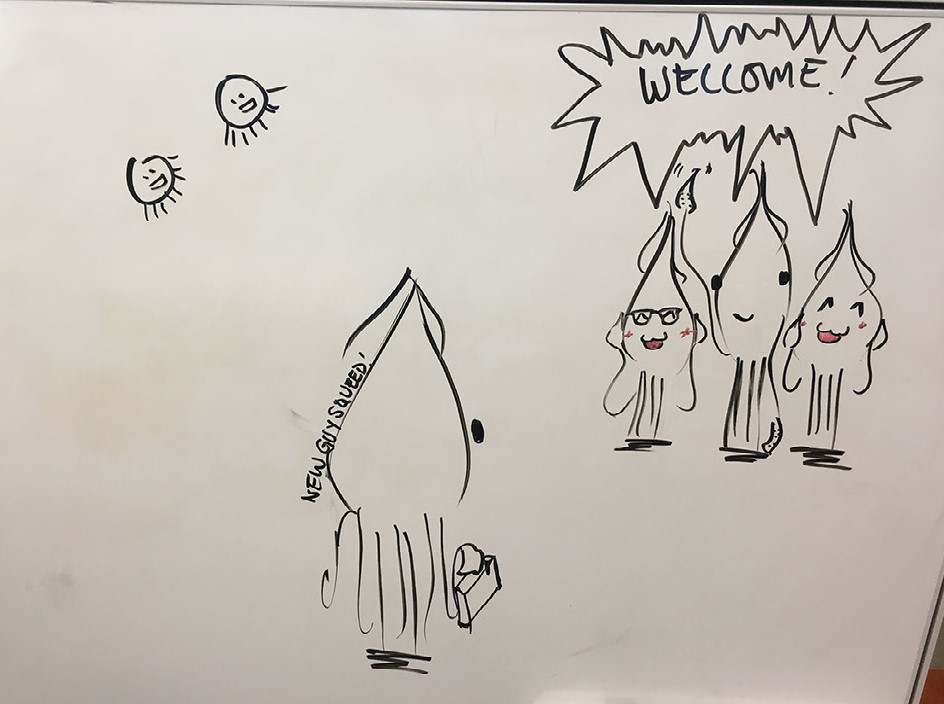 WELCOME!
NEW GUY SQUEED!